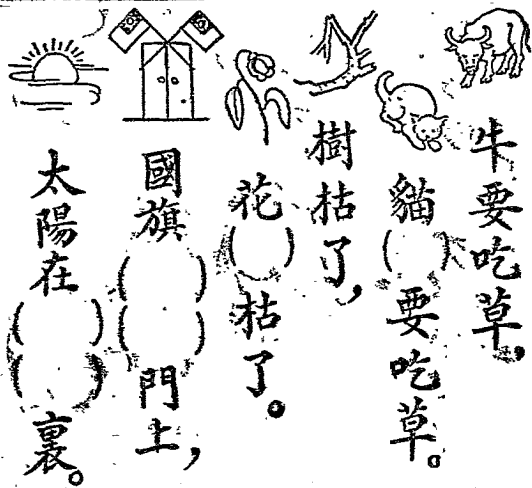 牛要吃草，
貓（　）要吃草。
樹枯了，
花（　）枯了。
國旗（　）（　）門上，
太陽在（　）（　）裏。